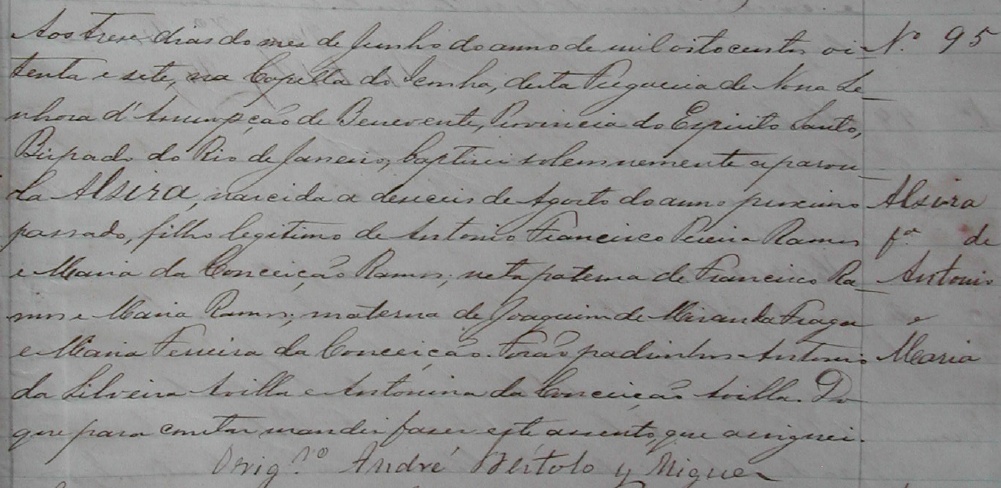 Aos trese dias do mes de Junho do anno de mil oito centos oi- Nº 95
tenta e sete, na Capella do desta Freguesia de Nossa Se-
nhora d'Assumpção de Benevente, Provincia do Espirito Santo,
Bispado do Rio de Janeiro, baptisei solemnemente a parvu-
la Alsira, nascida a deseseis de Agosto do anno proximo Alsira
passado, filha legitima de Antonio Francisco Pereira Ramos fª de
e Maria da Conceição Ramos; neta paterna de Francisco Ra- Antonio
mos e Maria Ramos; materna de Joaquim de Miranda Fraga e
e Maria Ferreira da Conceição. Forão padrinhos Antonio Maria
da Silveira Avilla e Antonina da Conceição Avilla. Do
que para constar mandei faser este assento, que assignei.
André Bertolo y Miguez